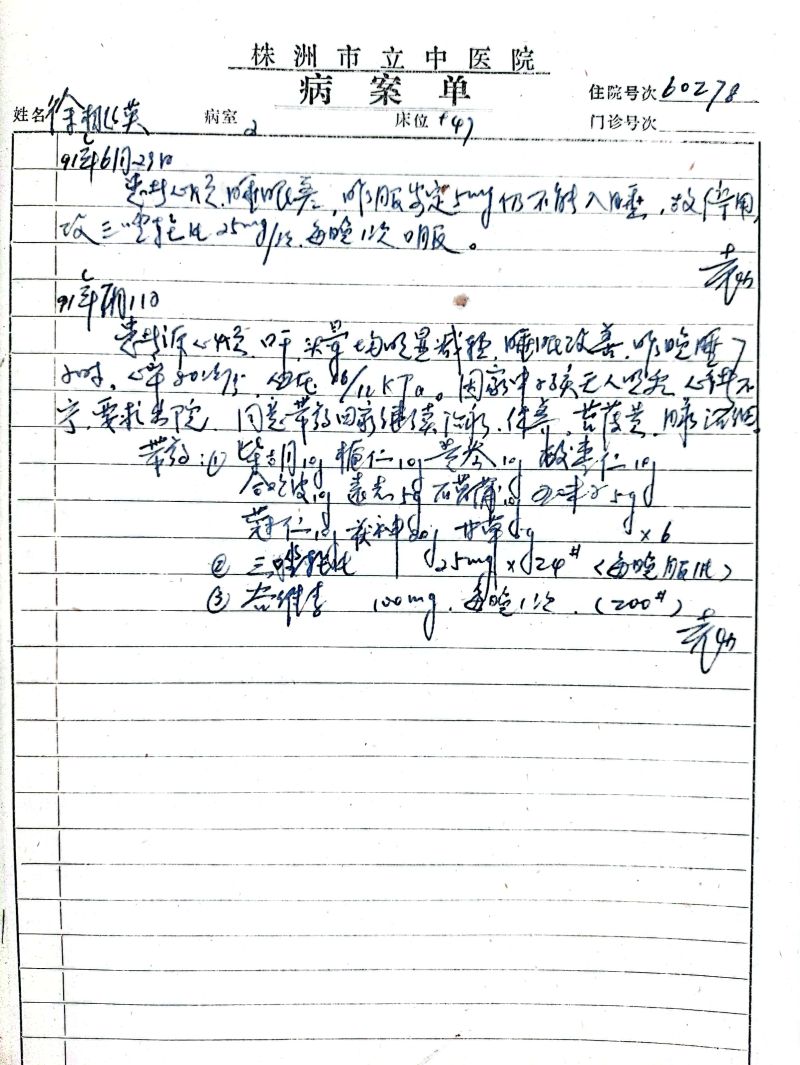 株洲市立中医院
病案单
住院号次 60278
姓名 徐 英 病室 2 床位 +47 门诊号次
91年6月29日
患者心烦,睡眠差,昨服安定5mg仍不能入睡,故停用,
改三唑 25mg/次,每晚1次口服。
91年7月1日
患者诉心烦、口干、头晕均明显减轻,睡眠改善,昨晚睡7
小时, 16/12KPa。因家中 无人照看,心神不
宁,要求出院,同意带药回家继续治疗。 苔薄黄,脉沉细。
带药:① 柴胡10g 10g 10g 酸枣仁10g
合欢皮10g 远志5g 石菖蒲10g 五味子5g
仁10g 茯神 甘草5g ×6
② 三唑 25mg×24# (每晚服1片)
③ 谷维素 100mg.每晚1次.(200#)